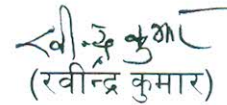 रवीन्द्र कुमार
(रवीन्द्र कुमार)